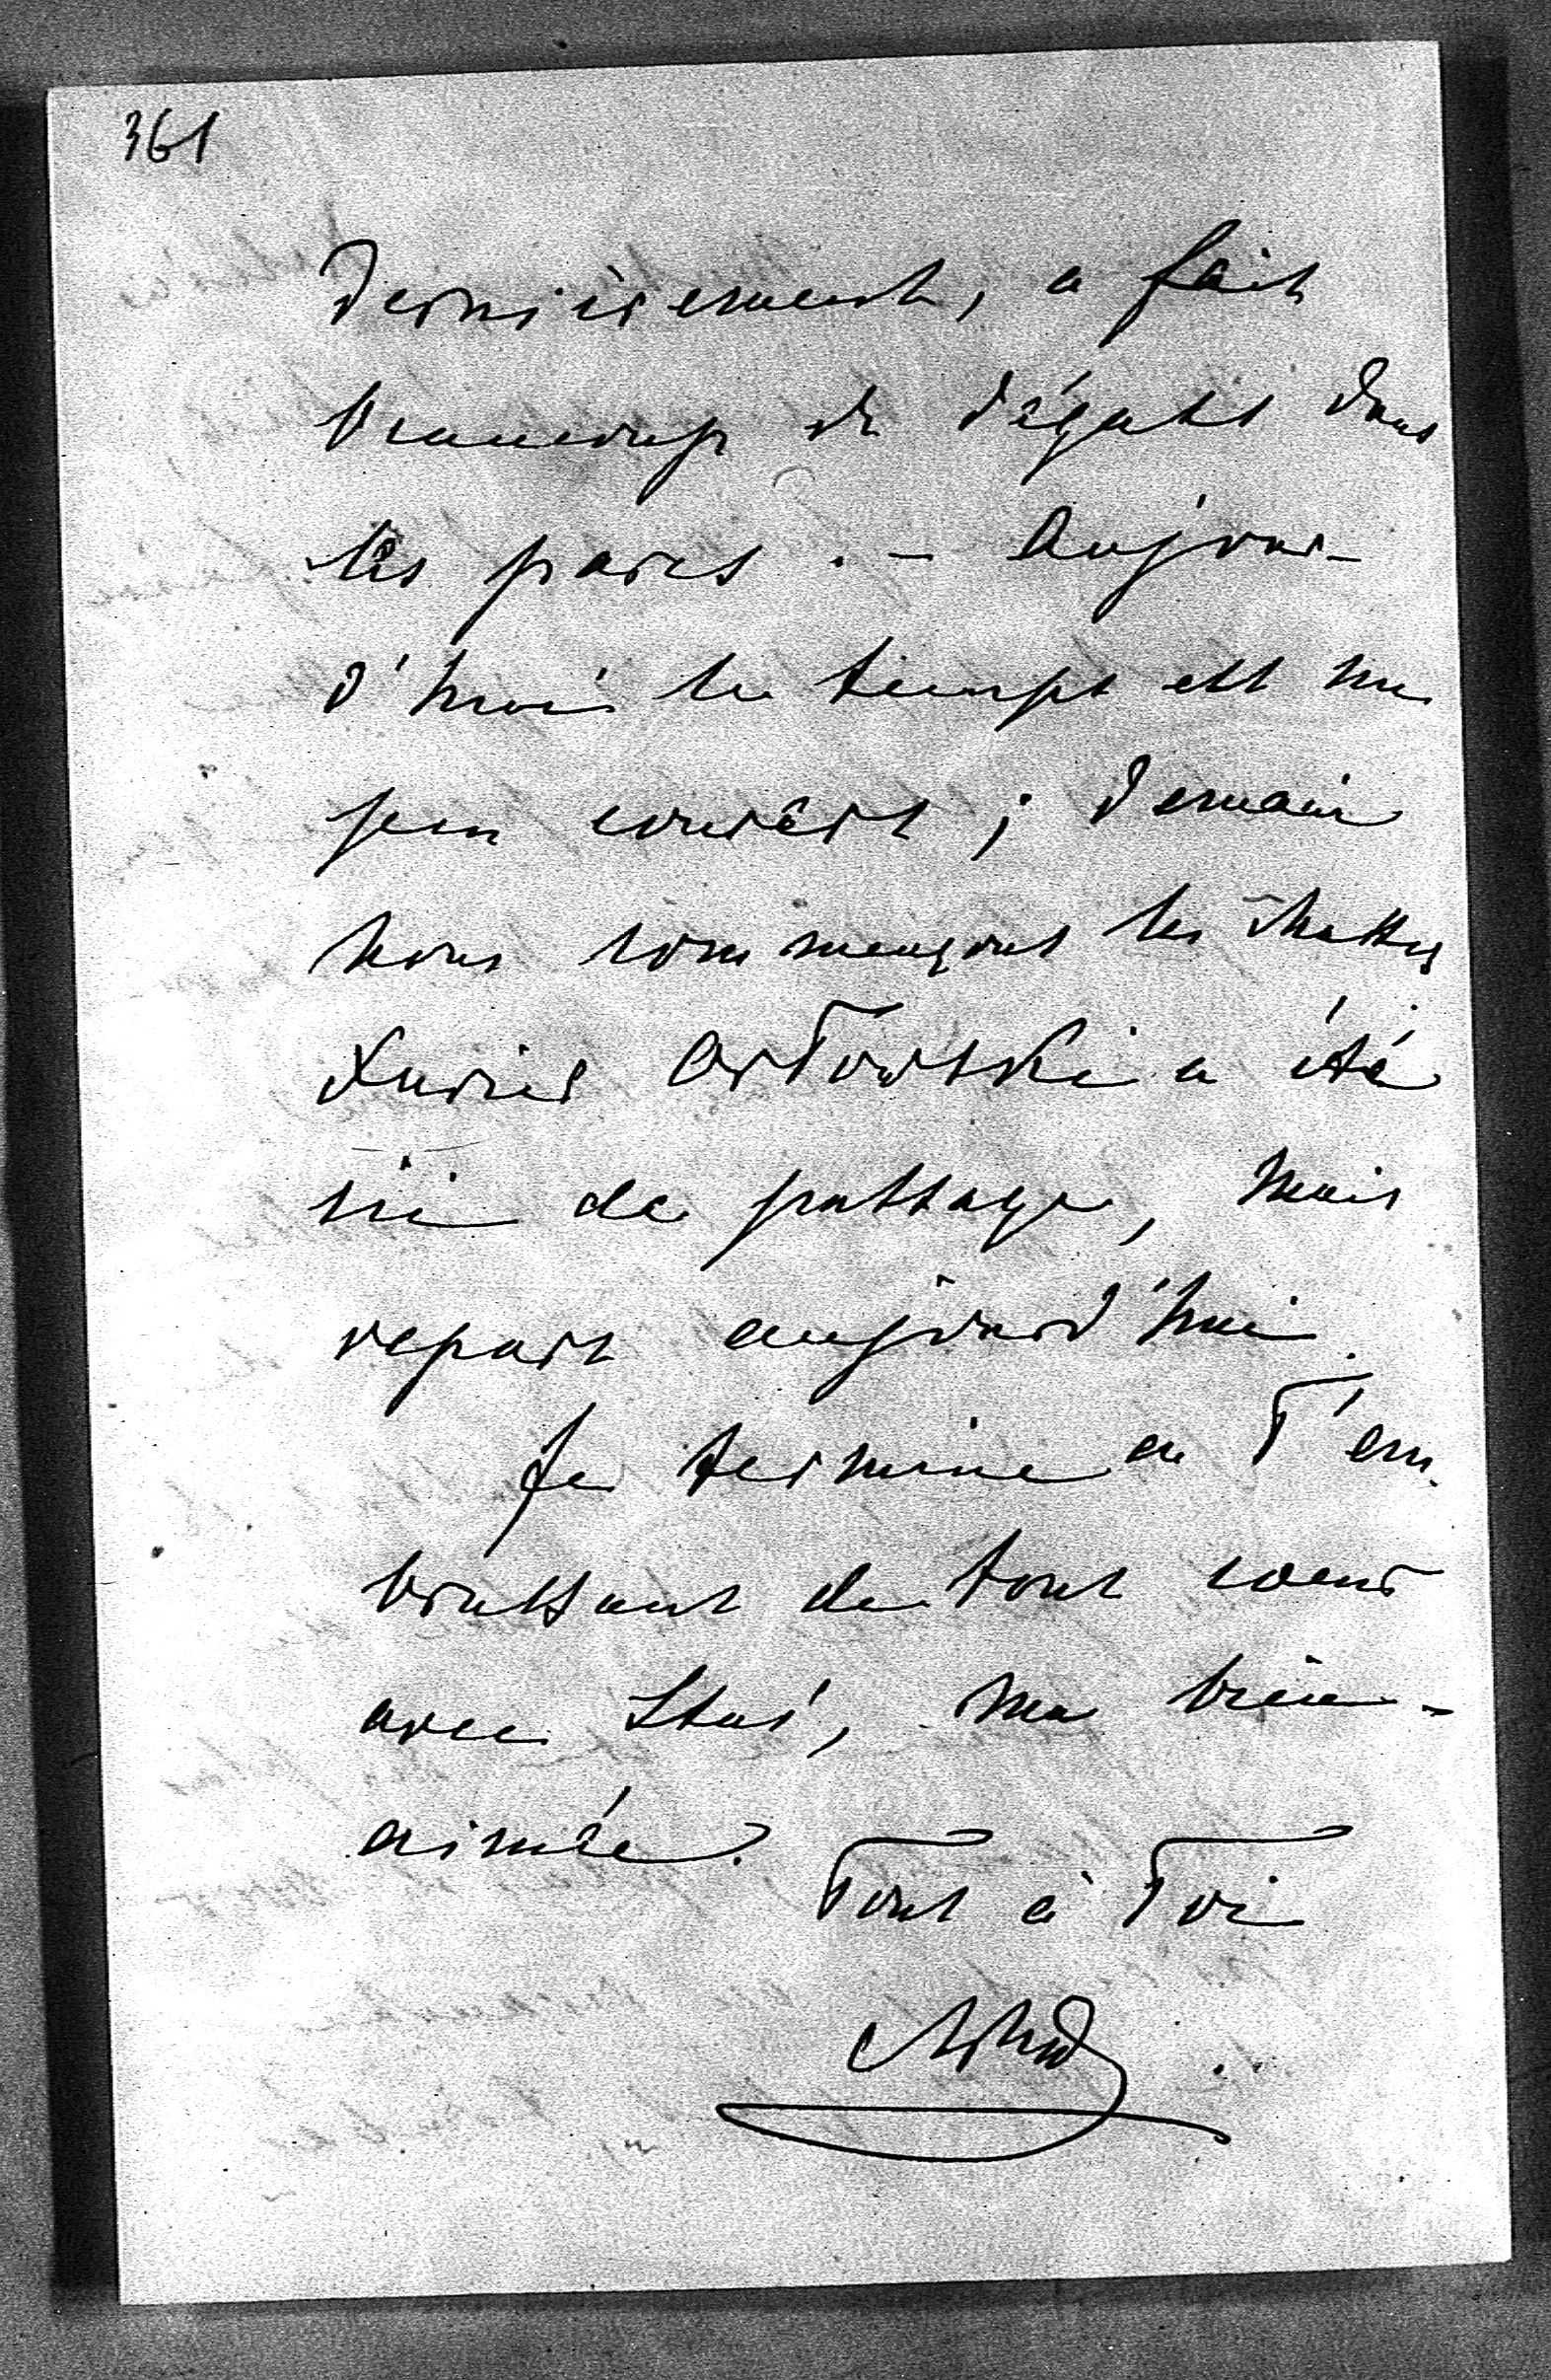 361
dernièrement, a fait
beaucoup de dégats dans
les parcs. — Aujour-
d'hui le temps est un
peu couvert ; demain
nous commençons les chasses
Xavier Orłowski a été
ici de passage, mais
repart aujourd'hui.
Je termine en T'em-
brassant de tout coeur
avec Staś, ma bien-
aimée. Tout à Toi